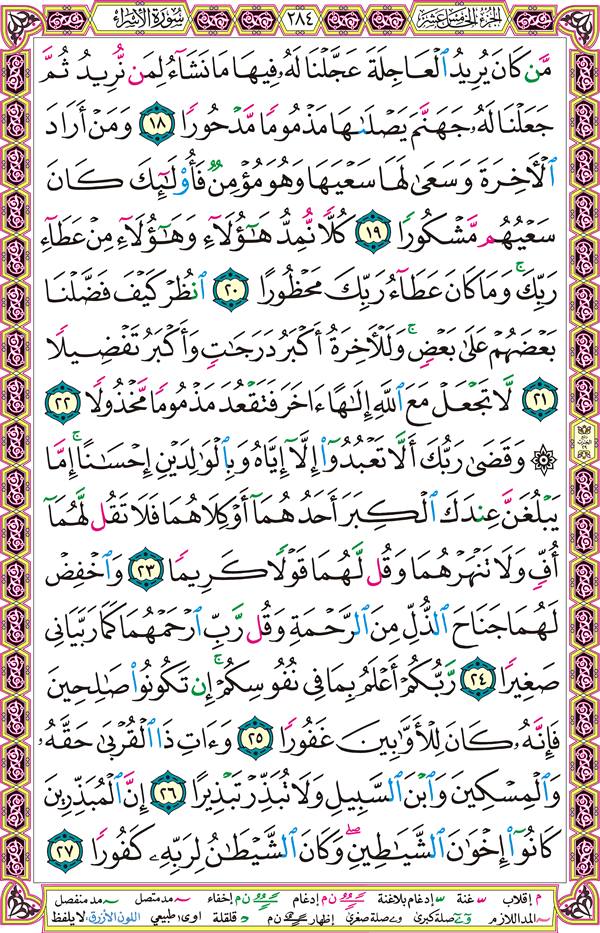 الجزء الخامس عشر ٢٨٤ سورة الإسراء
مَّن كَانَ يُرِيدُ ٱلْعَاجِلَةَ عَجَّلْنَا لَهُۥ فِيهَا مَا نَشَآءُ لِمَن نُّرِيدُ ثُمَّ
جَعَلْنَا لَهُۥ جَهَنَّمَ يَصْلَىٰهَا مَذْمُومًا مَّدْحُورًا ١٨ وَمَنْ أَرَادَ
ٱلْأَخِرَةَ وَسَعَىٰ لَهَا سَعْيَهَا وَهُوَ مُؤْمِنٌ فَأُو۟لَٰٓئِكَ كَانَ
سَعْيُهُم مَّشْكُورًا ١٩ كُلًّا نُّمِدُّ هَٰٓؤُلَآءِ وَهَٰٓؤُلَآءِ مِنْ عَطَآءِ
رَبِّكَ ۚ وَمَا كَانَ عَطَآءُ رَبِّكَ مَحْظُورًا ٢٠ ٱنظُرْ كَيْفَ فَضَّلْنَا
بَعْضَهُمْ عَلَىٰ بَعْضٍ ۚ وَلَلْأَخِرَةُ أَكْبَرُ دَرَجَٰتٍ وَأَكْبَرُ تَفْضِيلًا
٢١ لَّا تَجْعَلْ مَعَ ٱللَّهِ إِلَٰهًا ءَاخَرَ فَتَقْعُدَ مَذْمُومًا مَّخْذُولًا ٢٢
۞ وَقَضَىٰ رَبُّكَ أَلَّا تَعْبُدُوٓا۟ إِلَّآ إِيَّاهُ وَبِٱلْوَٰلِدَيْنِ إِحْسَٰنًا ۚ إِمَّا
يَبْلُغَنَّ عِندَكَ ٱلْكِبَرَ أَحَدُهُمَآ أَوْ كِلَاهُمَا فَلَا تَقُل لَّهُمَآ
أُفٍّ وَلَا تَنْهَرْهُمَا وَقُل لَّهُمَا قَوْلًا كَرِيمًا ٢٣ وَٱخْفِضْ
لَهُمَا جَنَاحَ ٱلذُّلِّ مِنَ ٱلرَّحْمَةِ وَقُل رَّبِّ ٱرْحَمْهُمَا كَمَا رَبَّيَانِى
صَغِيرًا ٢٤ رَّبُّكُمْ أَعْلَمُ بِمَا فِى نُفُوسِكُمْ ۚ إِن تَكُونُوا۟ صَٰلِحِينَ
فَإِنَّهُۥ كَانَ لِلْأَوَّٰبِينَ غَفُورًا ٢٥ وَءَاتِ ذَا ٱلْقُرْبَىٰ حَقَّهُۥ
وَٱلْمِسْكِينَ وَٱبْنَ ٱلسَّبِيلِ وَلَا تُبَذِّرْ تَبْذِيرًا ٢٦ إِنَّ ٱلْمُبَذِّرِينَ
كَانُوٓا۟ إِخْوَٰنَ ٱلشَّيَٰطِينِ ۖ وَكَانَ ٱلشَّيْطَٰنُ لِرَبِّهِۦ كَفُورًا ٢٧
م إقلاب غنة إدغام بلاغنة ن م إدغام ن م إخفاء مد متصل مد منفصل
المد اللازم صلة كبرى صلة صغرى إظهار ن م قلقلة اوى طبيعي اللون الأزرق لا يلفظ